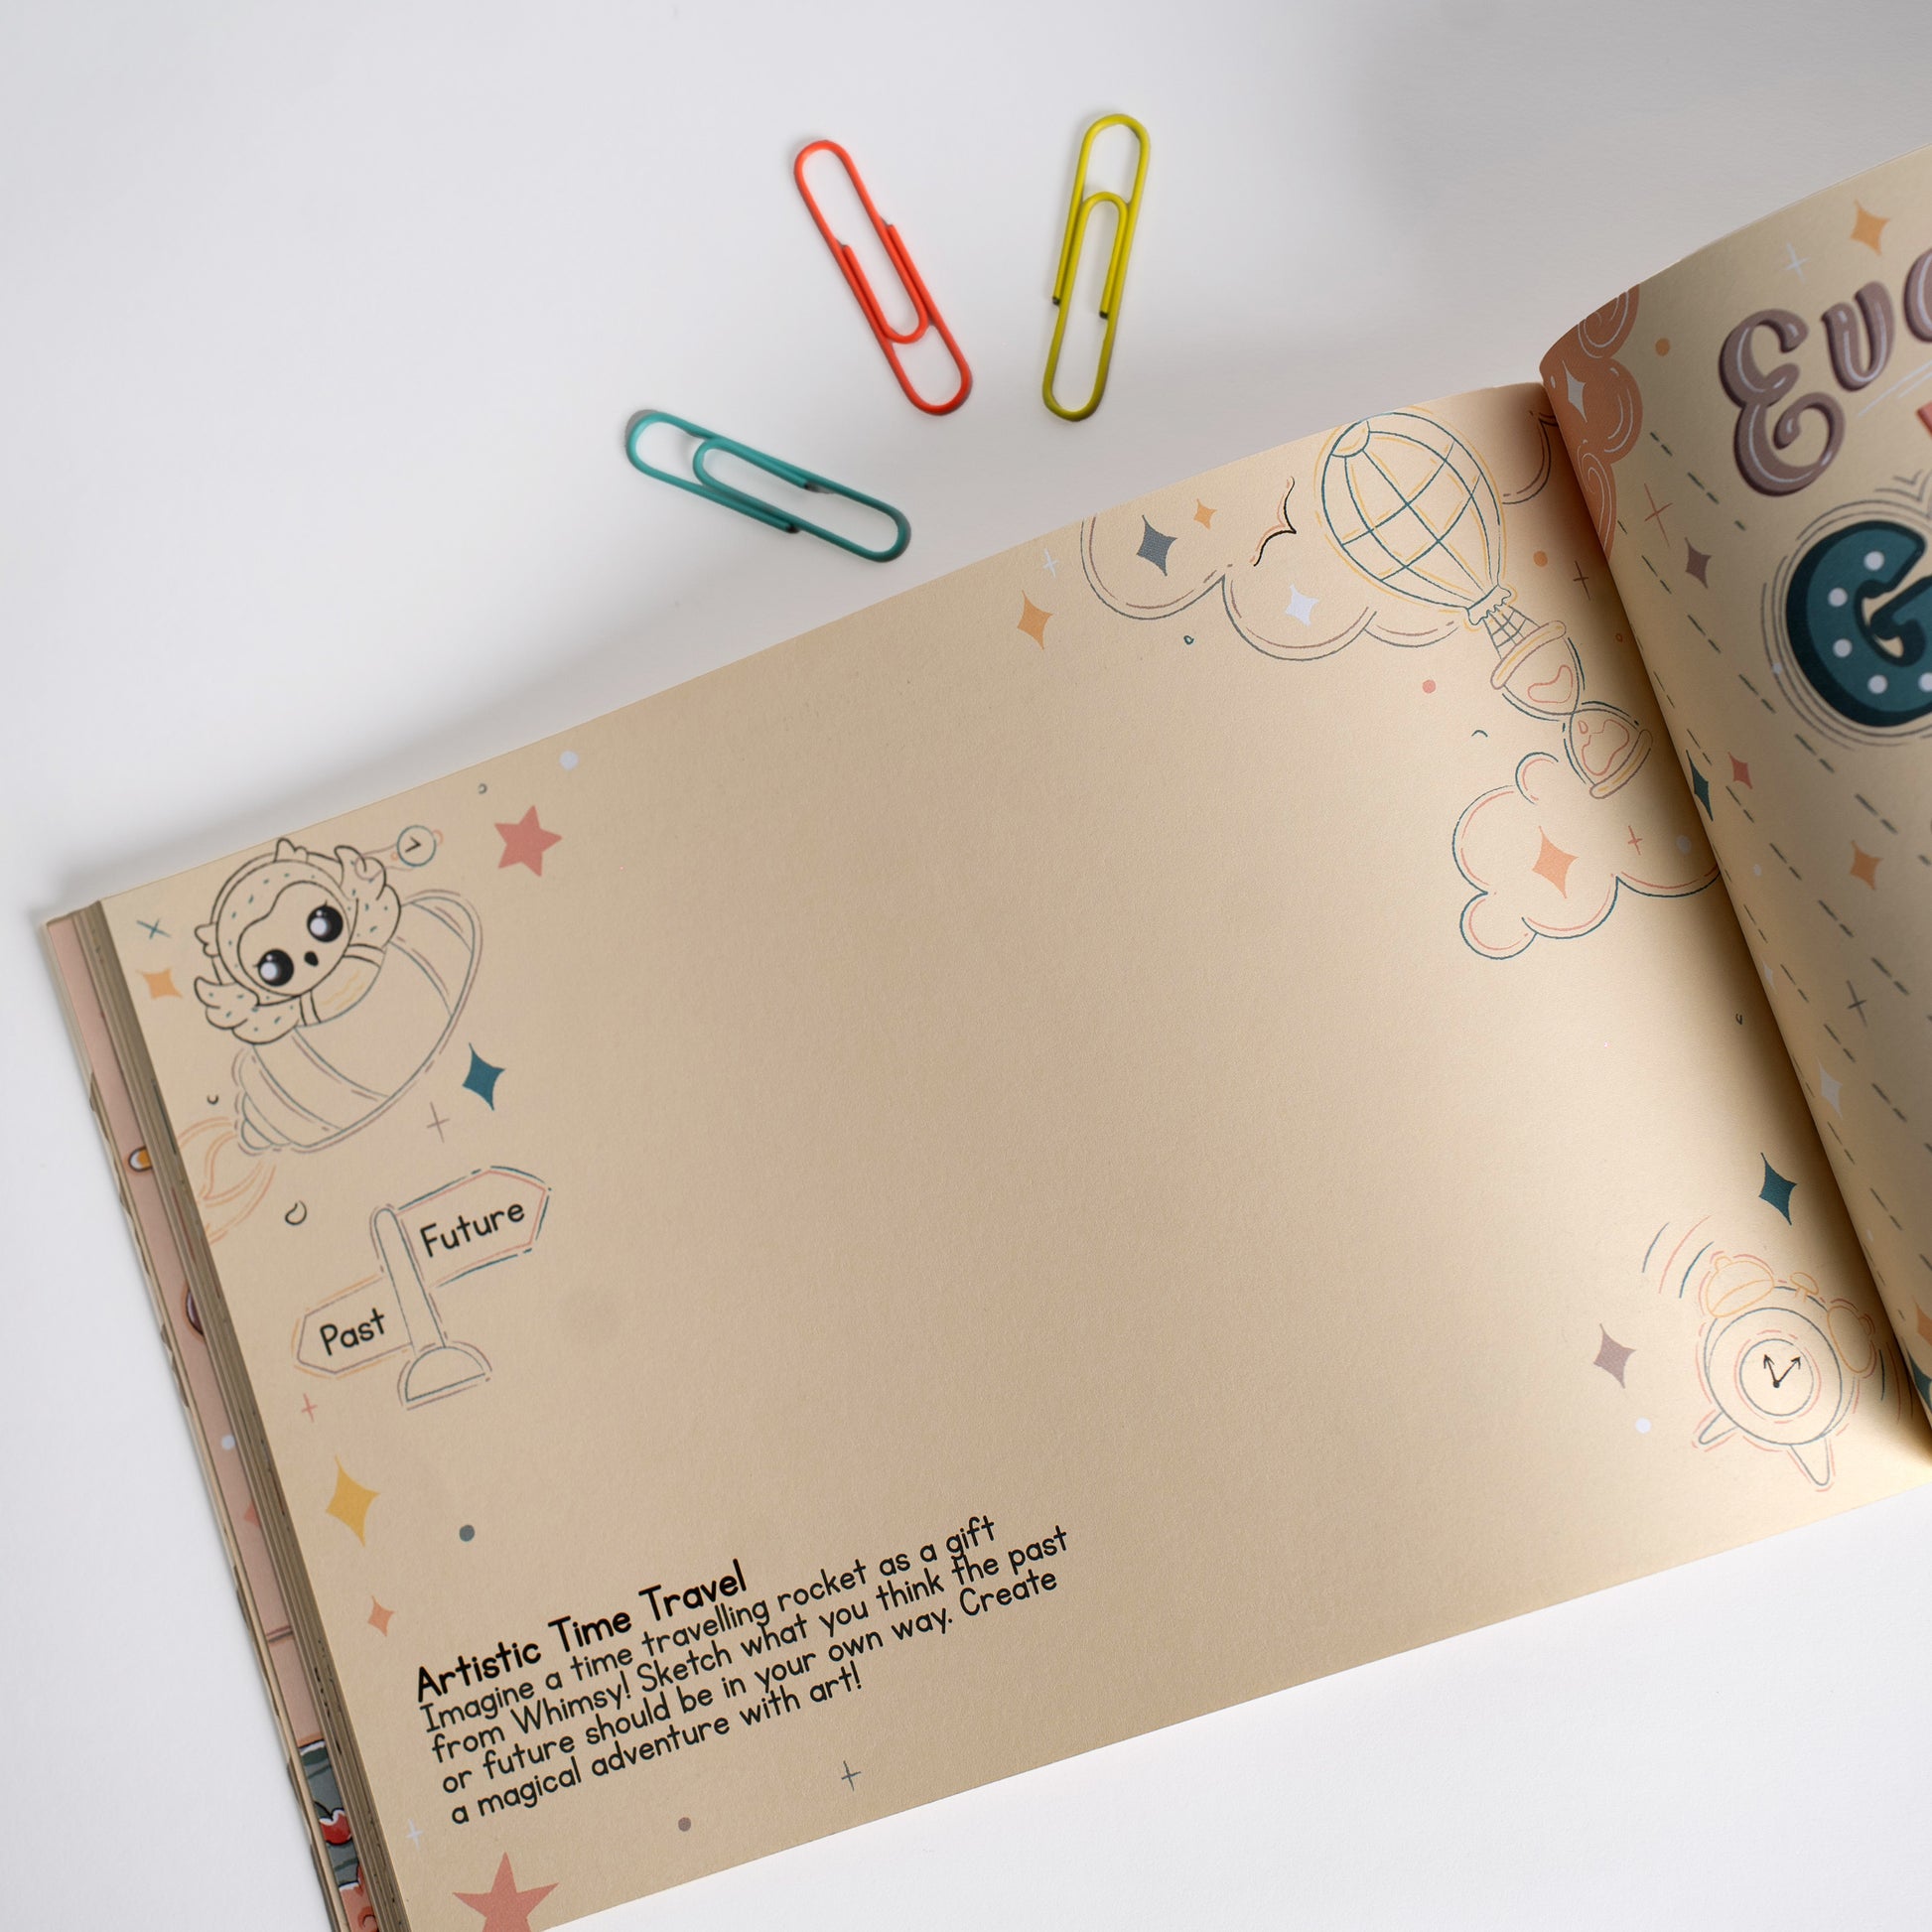 Future
Past
Artistic Time Travel
Imagine a time travelling rocket as a gift
from Whimsy! Sketch what you think the past
or future should be in your own way. Create
a magical adventure with art!